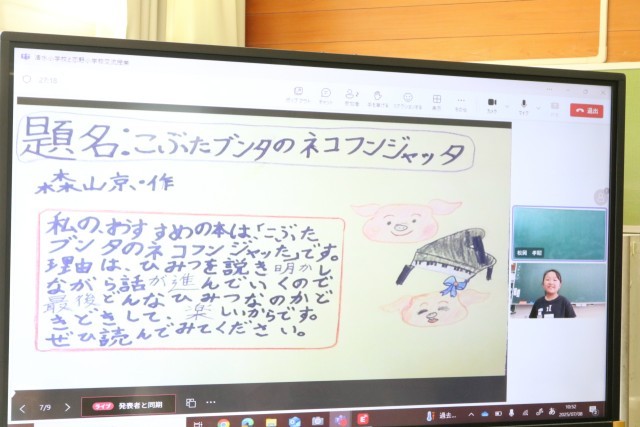 題名:こぶたブンタのネコフンジャッタ
森山京・作
私のおすすめの本は、「こぶた
ブンタのネコフンジャッた」です。
理由は、ひみつを説き明かし
ながら話が進んでいくので
最後どんなひみつなのかど
きどきして、楽しいからです。
ぜひ読んでみてください。
退出
7/9
ライブ 発表者と同期
過去...
10:52
2025/07/08